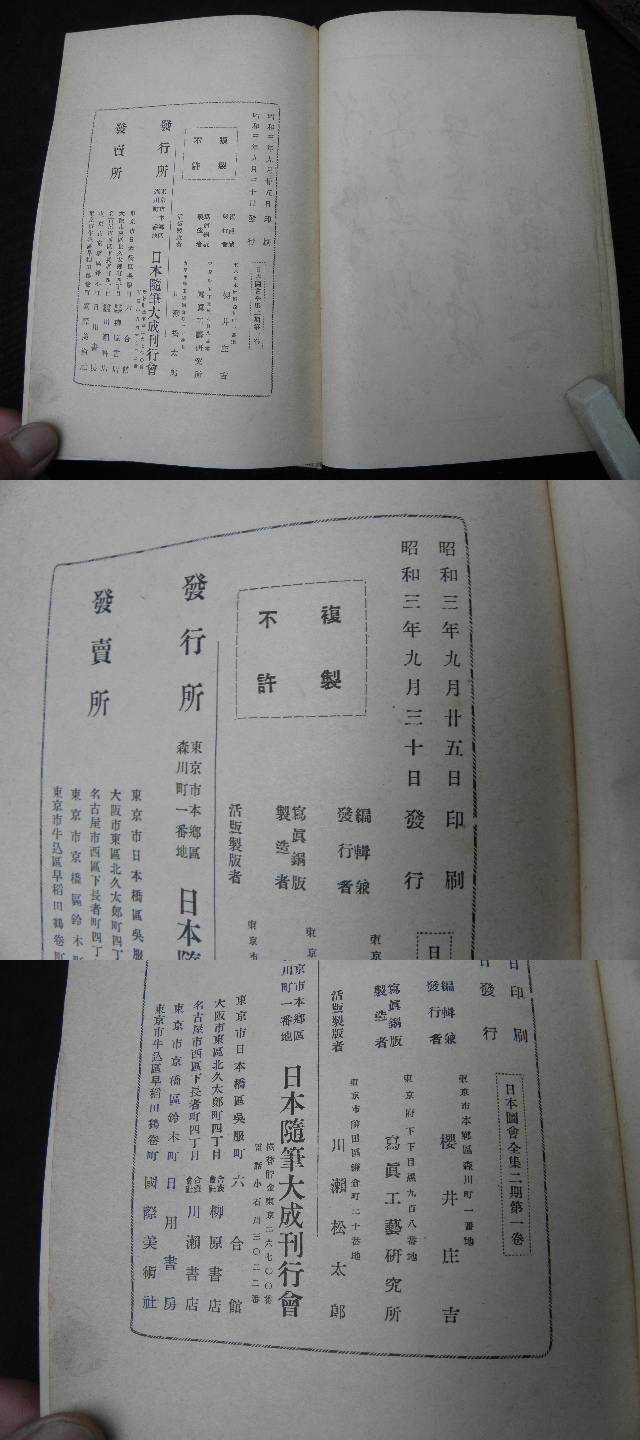 昭和三年九月廿五日印刷
昭和三年九月三十日發行
日本圖會全集二期第一卷
複製
不許
編輯兼
發行者
東京市本鄕區森川町一番地
櫻井庄吉
寫眞銅版
製造者
東京府下下目黑九百八番地
寫眞工藝硏究所
活版製版者
東京市神田區鎌倉町二十番地
川瀨松太郎
發行所
東京市本鄕區
森川町一番地
日本隨筆大成刊行會
振替貯金東京二六七〇〇番
電話小石川三〇二二番
發賣所
東京市日本橋區吳服町 六合館
大阪市東區北久太郞町四丁目 合資會社 柳原書店
名古屋市西區下長者町四丁目 合資會社 川瀨書店
東京市京橋區鈴木町 日用書房
東京市牛込區早稻田鶴卷町 國際美術社